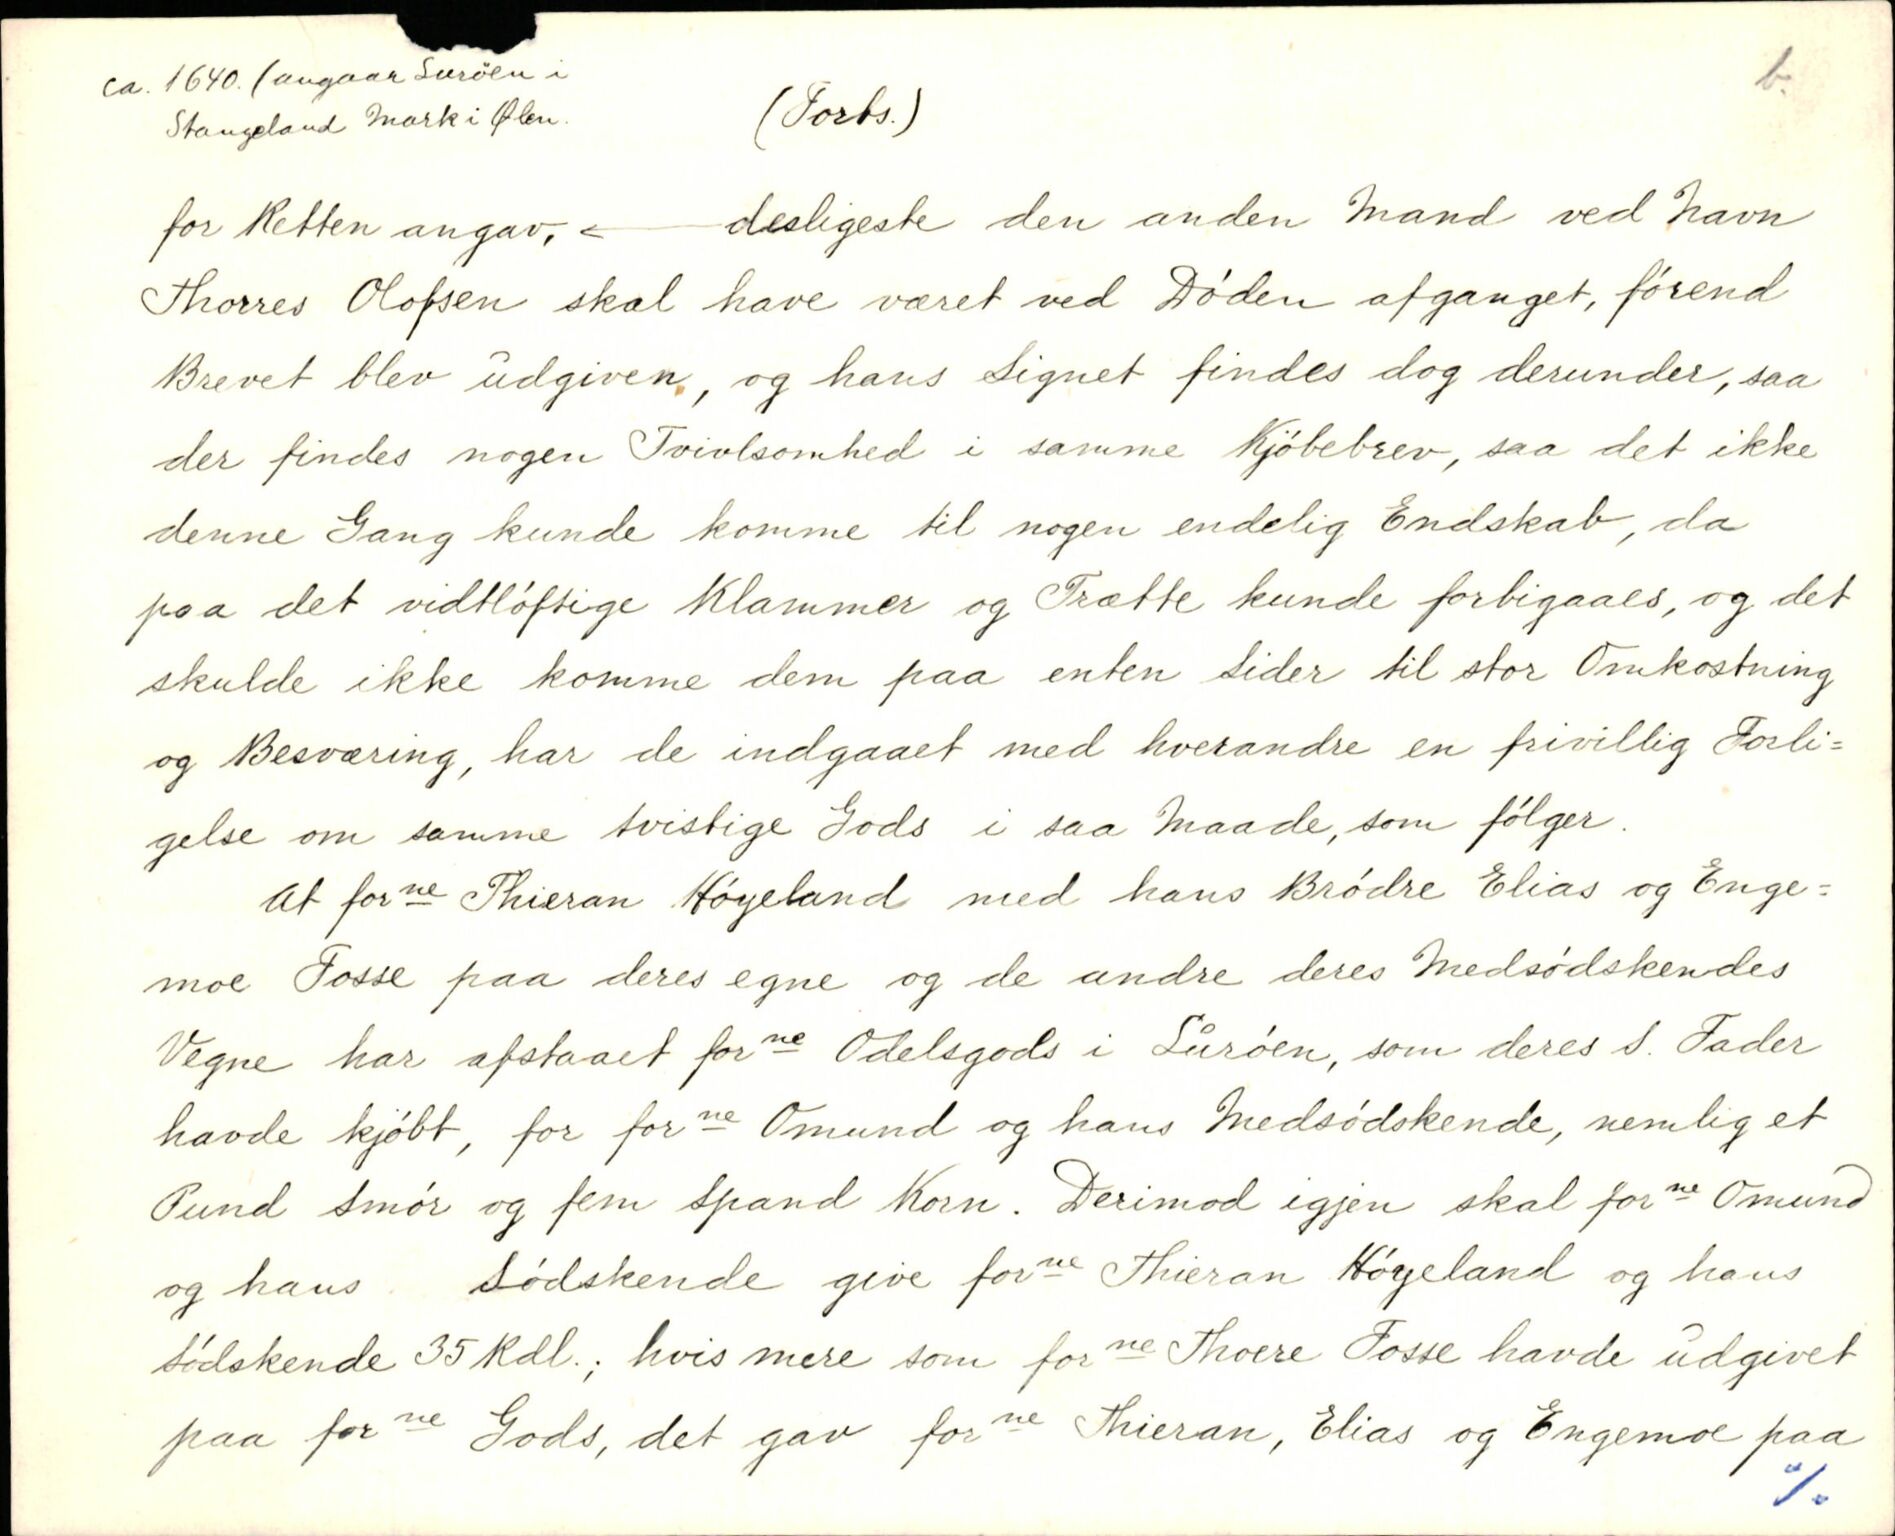 ca. 1640. (angaar Suröen i
Stangeland Mark i Ølen.
(Forts.)
b.
for Retten angav, < desligeste den anden Mand ved Navn
Thorres Olofsen skal have været ved Dóden afganget, fórend
Brevet blev ŭdgiven, og hans Signet findes dog derunder, saa
der findes nogen Tvivlsomhed i samme Kjóbebrev, saa det ikke
denne Gang kunde komme til nogen endelig Endskab, da
paa det vidtlóftige Klammer og Trætte kunde forbigaaes, og det
skulde ikke komme dem paa enten Sider til stor Omkostning
og Besværing, har de indgaaet med hverandre en frivillig Forli=
gelse om samme tvistige Gods i saa Maade, som fólger.
At forne Thieran Hóyeland med hans Bródre Elias og Enge=
moe Fosse paa deres egne og de andre deres Medsódskendes
Vegne har afstaaet forne Odelsgods i Sŭróen, som deres S. Fader
havde kjóbt, for forne Omund og hans Medsódskende, nemlig et
Pund Smór og fem Spand Korn. Derimod igjen skal forne Omund
og hans Sódskende give forne Thieran Hóyeland og hans
Sódskende 35 Rdl.; hvis mere som forne Thoere Fosse havde ŭdgivet
paa forne Gods, det gav forne Thieran, Elias og Engemoe paa
./.